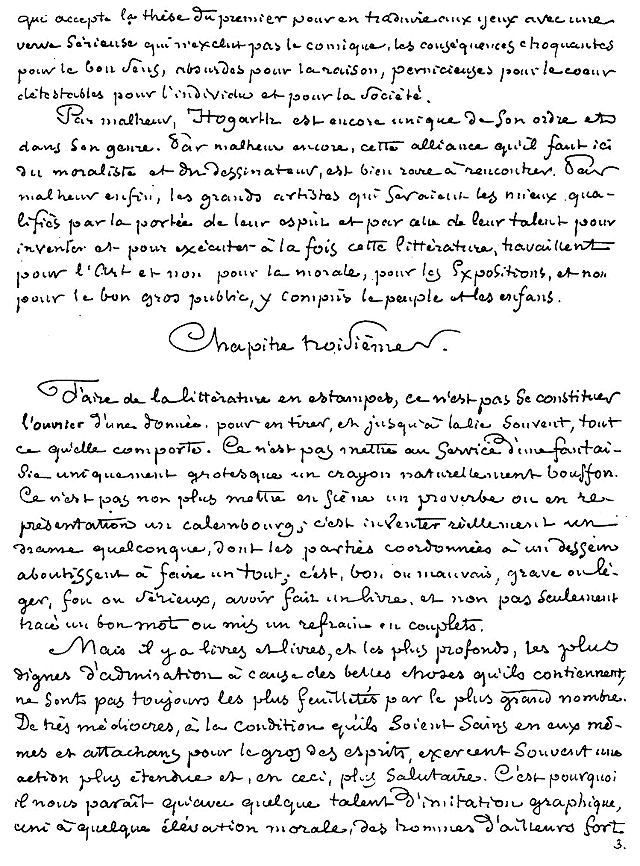 qui accepte la thèse du premier pour en traduire aux yeux avec une
verve sérieuse qui n'exclut pas le comique, les conséquences choquantes
pour le bon sens, absurdes pour la raison, pernicieuses pour le coeur
détestables pour l'individu et pour la société.
Par malheur, Hogarth est encore unique de son ordre et
dans son genre. Par malheur encore, cette alliance qu'il faut ici
du moraliste et du dessinateur, est bien rare à rencontrer. Par
malheur enfin, les grands artistes qui seraient les mieux qua-
lifiés par la portée de leur esprit et par celle de leur talent pour
inventer et pour exécuter à la fois cette littérature, travaillent
pour l'Art et non pour la morale, pour les Expositions, et non
pour le bon gros public, y compris le peuple et les enfans.
Chapitre troisième.
Faire de la littérature en estampes, ce n'est pas se constituer
l'ouvrier d'une donnée, pour en tirer, et jusqu'à la lie souvent, tout
ce qu'elle comporte. Ce n'est pas mettre au service d'une fantai-
sie uniquement grotesque un crayon naturellement bouffon.
Ce n'est pas non plus mettre en scène un proverbe ou en re-
présentation un calembourg; c'est inventer réellement un
drame quelconque, dont les parties coordonnées à un dessein
aboutissent à faire un tout; c'est, bon ou mauvais, grave ou lé-
ger, fou ou sérieux, avoir fait un livre, et non pas seulement
tracé un bon mot ou mis un refrain en couplets.
Mais il y a livres et livres, et les plus profonds, les plus
dignes d'admiration à cause des belles choses qu'ils contiennent,
ne sont pas toujours les plus feuilletés par le plus grand nombre.
De très médiocres, à la condition qu'ils soient sains en eux mê-
mes et attachans pour le gros des esprits, exercent souvent une
action plus étendue et, en ceci, plus salutaire. C'est pourquoi
il nous paraît qu'avec quelque talent d'imitation graphique,
uni à quelque élévation morale, des hommes d'ailleurs fort
3.